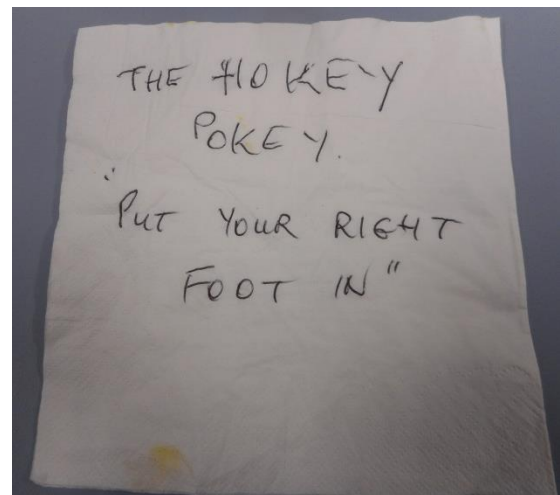 THE HOKEY
POKEY.
"PUT YOUR RIGHT
FOOT IN"